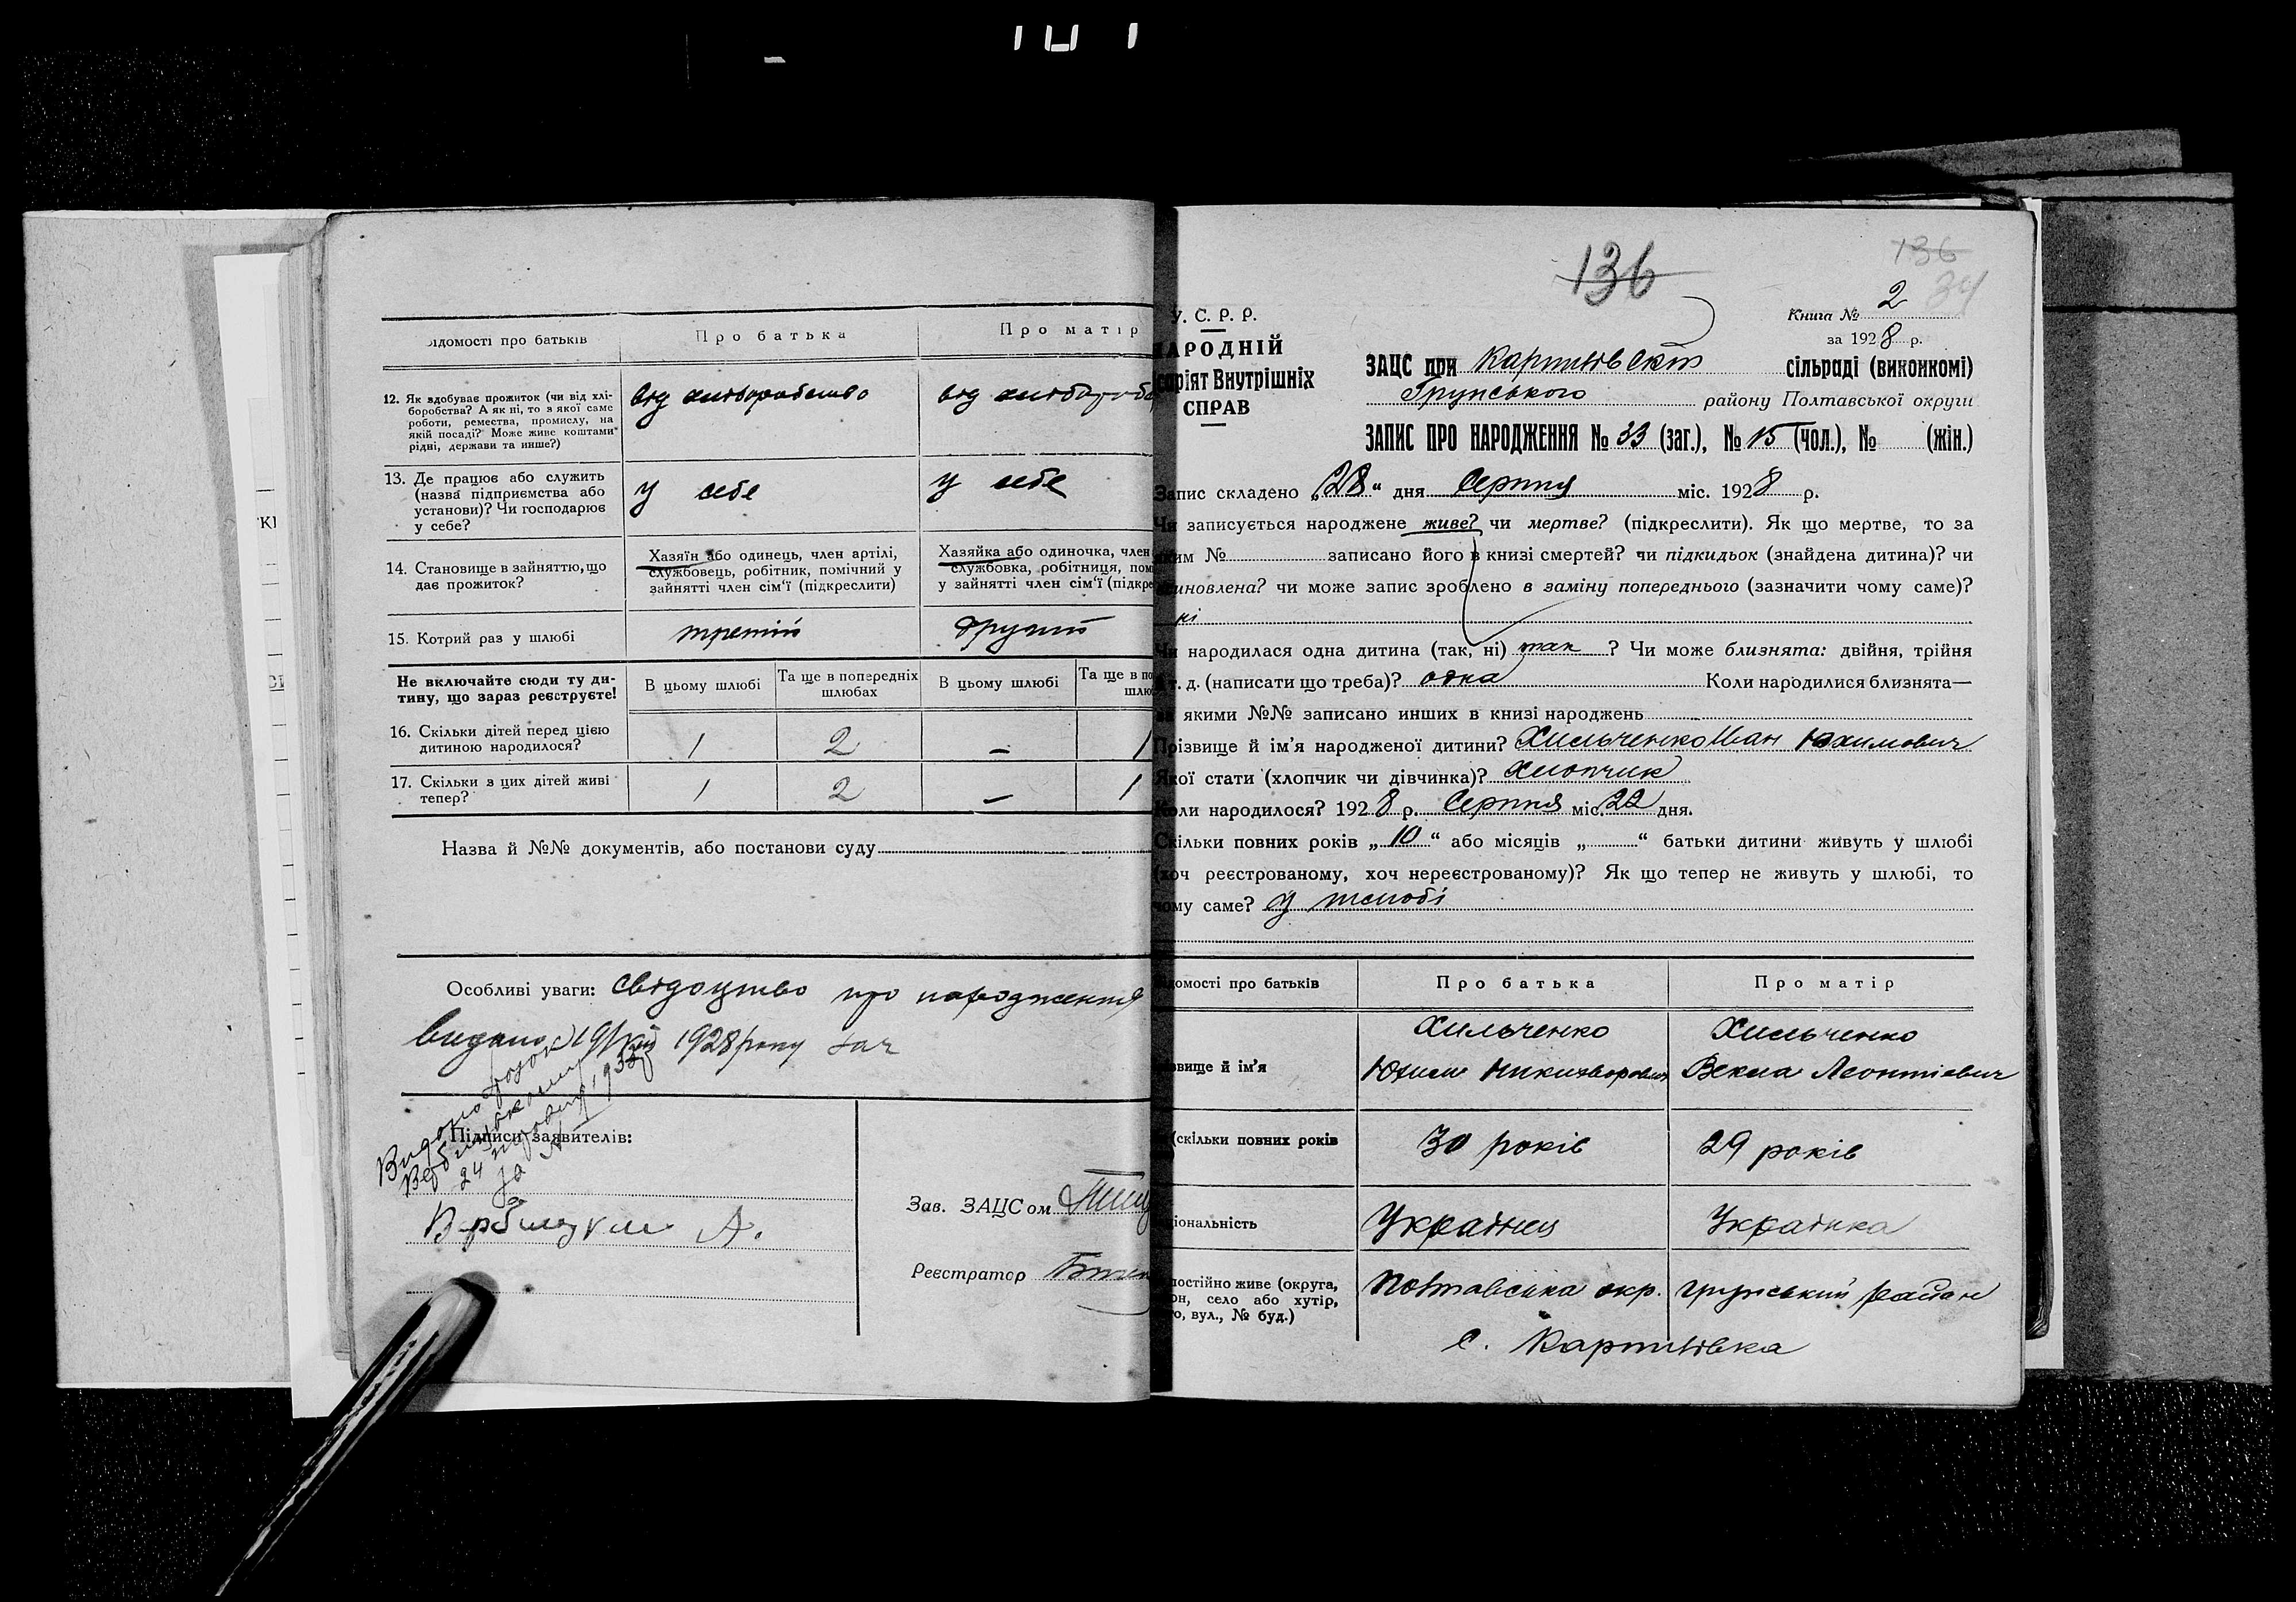 Відомості про батьків
Про батька
Про матір
12. Як здобуває прожиток (чи від хлі-
боробства? А як ні, то з якої саме
роботи, ремества, промислу, на
якій посаді? Може живе коштами
рідні, держави та инше?)
від хліборобство
від хлібороб
13. Де працює або служить
(назва підприємства або
установи)? Чи господарює
у себе?
у себе
у себе
14. Становище в зайняттю, що
дає прожиток?
Хазяїн або одинець, член артілі,
службовець, робітник, помічний у
зайнятті член сім'ї (підкреслити)
Хазяйка або одиночка, член
службовка, робітниця, пом
у зайнятті член сім'ї (підкре
15. Котрий раз у шлюбі
третій
другий
Не включайте сюди ту ди-
тину, що зараз реєструєте!
В цьому шлюбі
Та ще в попередніх
шлюбах
В цьому шлюбі
Та ще в по
шлю
16. Скільки дітей перед цією
дитиною народилося?
1 2 – 1
17. Скільки з цих дітей живі
тепер?
1 2 – 1
Назва й №№ документів, або постанови суду
Особливі уваги: свідоцтво про народження
видано 19 1928 року
Підписи заявителів:
24 1933
А.
Зав. ЗАЦСом
Реєстратор
136
136
34
У. С. Р. Р.
НАРОДНІЙ
саріят Внутрішніх
СПРАВ
Книга № 2
за 1928 р.
ЗАЦС при Картилівскій сільраді (виконкомі)
Грунського району Полтавської округи
ЗАПИС ПРО НАРОДЖЕННЯ № 33 (заг.), № 15 (чол.), № (жін.)
Запис складено „28" дня Серпня міс. 1928 р.
Чи записується народжене живе? чи мертве? (підкреслити). Як що мертве, то за
яким № записано його в книзі смертей? чи підкидьок (знайдена дитина)? чи
иновлена? чи може запис зроблено в заміну попереднього (зазначити чому саме)?
ні
Чи народилася одна дитина (так, ні) так ? Чи може близнята: двійня, трійня
т. д. (написати що треба)? одна Коли народилися близнята—
якими №№ записано инших в книзі народжень
Прізвище й ім'я народженої дитини? Хильченко Іван Юхимович
Якої стати (хлопчик чи дівчинка)? Хлопчик
Коли народилося? 1928 р. Серпня міс. 22 дня.
Скільки повних років „10" або місяців „ " батьки дитини живуть у шлюбі
(хоч реєстрованому, хоч нереєстрованому)? Як що тепер не живуть у шлюбі, то
чому саме? у шлюбі
домості про батьків
Про батька
Про матір
звище й ім'я
Хильченко
Юхим Никифорович
Хильченко
Векла Леонтіевич
(скільки повних років
30 років
29 років
ціональність
Українец
Українка
постійно живе (округа,
он, село або хутір,
о, вул., № буд.)
Полтавська окр. Грунський район
с. Картилівка